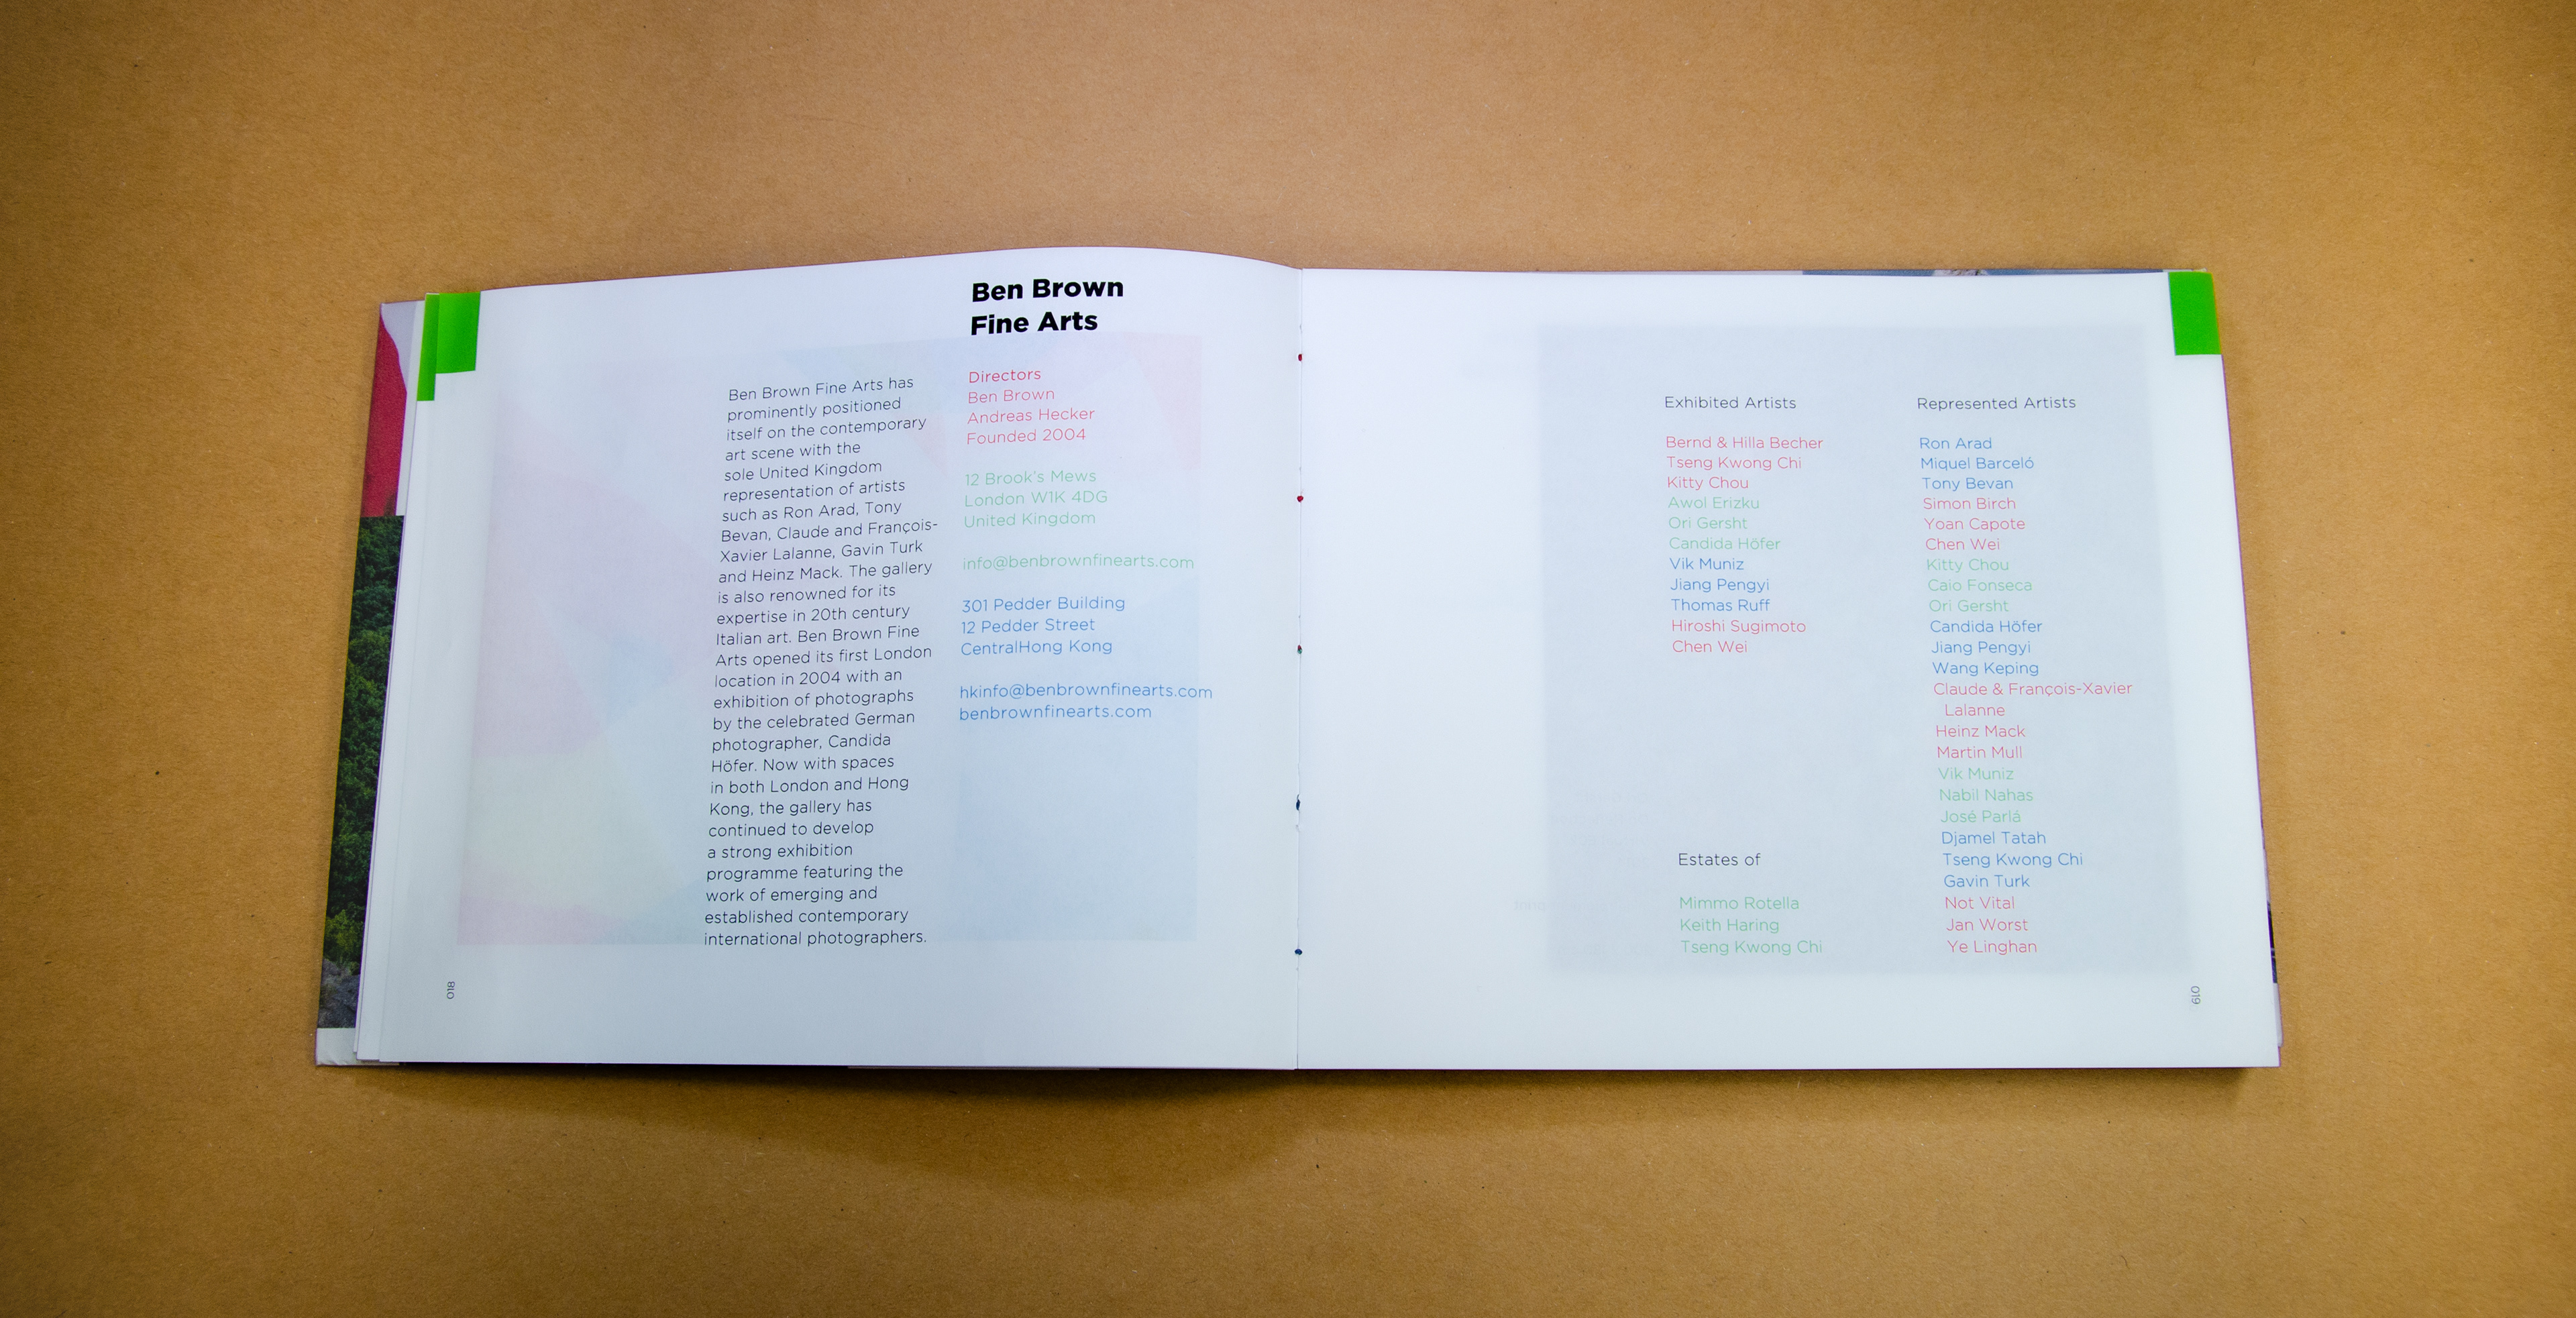 Ben Brown
Fine Arts
Ben Brown Fine Arts has
prominently positioned
itself on the contemporary
art scene with the
sole United Kingdom
representation of artists
such as Ron Arad, Tony
Bevan, Claude and François-
Xavier Lalanne, Gavin Turk
and Heinz Mack. The gallery
is also renowned for its
expertise in 20th century
Italian art. Ben Brown Fine
Arts opened its first London
location in 2004 with an
exhibition of photographs
by the celebrated German
photographer, Candida
Höfer. Now with spaces
in both London and Hong
Kong, the gallery has
continued to develop
a strong exhibition
programme featuring the
work of emerging and
established contemporary
international photographers.
Directors
Ben Brown
Andreas Hecker
Founded 2004
12 Brook's Mews
London W1K 4DG
United Kingdom
info@benbrownfinearts.com
301 Pedder Building
12 Pedder Street
CentralHong Kong
hkinfo@benbrownfinearts.com
benbrownfinearts.com
018
Exhibited Artists
Bernd & Hilla Becher
Tseng Kwong Chi
Kitty Chou
Awol Erizku
Ori Gersht
Candida Höfer
Vik Muniz
Jiang Pengyi
Thomas Ruff
Hiroshi Sugimoto
Chen Wei
Estates of
Mimmo Rotella
Keith Haring
Tseng Kwong Chi
Represented Artists
Ron Arad
Miquel Barceló
Tony Bevan
Simon Birch
Yoan Capote
Chen Wei
Kitty Chou
Caio Fonseca
Ori Gersht
Candida Höfer
Jiang Pengyi
Wang Keping
Claude & François-Xavier
Lalanne
Heinz Mack
Martin Mull
Vik Muniz
Nabil Nahas
José Parlá
Djamel Tatah
Tseng Kwong Chi
Gavin Turk
Not Vital
Jan Worst
Ye Linghan
019